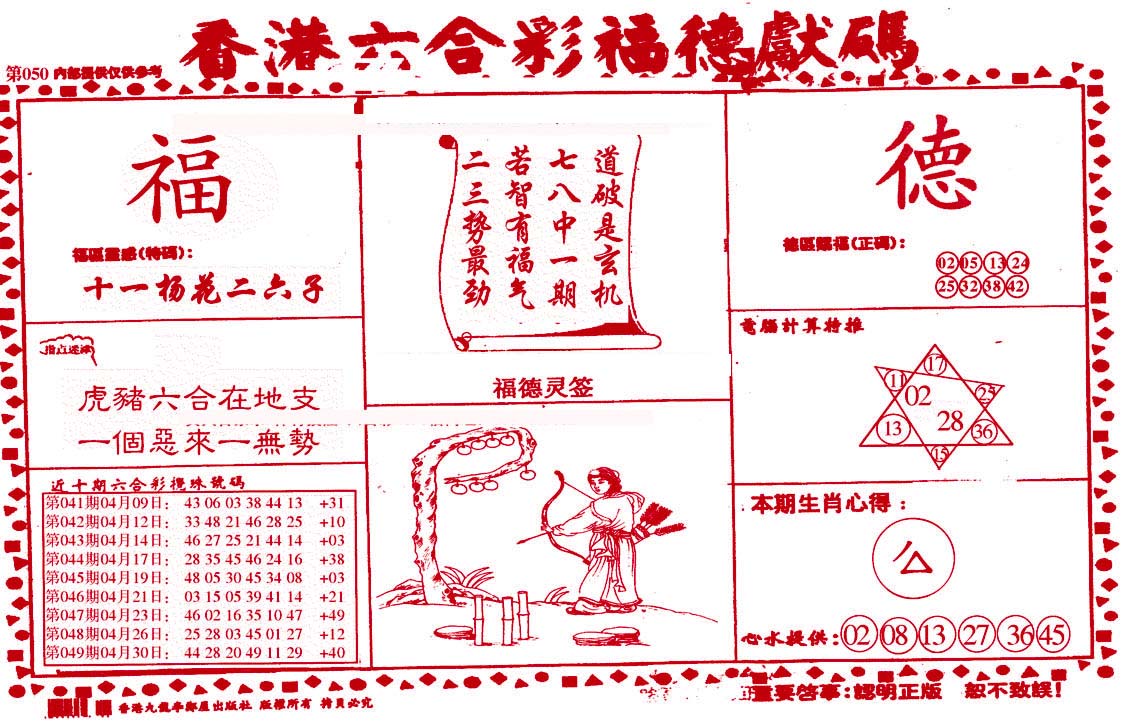 香港六合彩福德獻碼
第050 內部提供仅供參考
福
福區靈感(特碼):
十一杨花二六子
指点迷津
虎豬六合在地支
一個惡來一無勢
近十期六合彩攪珠號碼
第041期04月09日: 43 06 03 38 44 13 +31
第042期04月12日: 33 48 21 46 28 25 +10
第043期04月14日: 46 27 25 21 44 14 +03
第044期04月17日: 28 35 45 46 24 16 +38
第045期04月19日: 48 05 30 45 34 08 +03
第046期04月21日: 03 15 05 39 41 14 +21
第047期04月23日: 46 02 16 35 10 47 +49
第048期04月26日: 25 28 03 45 01 27 +12
第049期04月30日: 44 28 20 49 11 29 +40
道破是玄机
七八中一期
若智有福气
二三势最劲
福德灵签
德
德區賜福(正碼):
02 05 13 24
25 32 38 42
電腦計算特推
17
11 02 25
13 28 36
15
本期生肖心得:
心水提供: 02 08 13 27 36 45
重要啓事:認明正版 恕不致誤!
版權所有